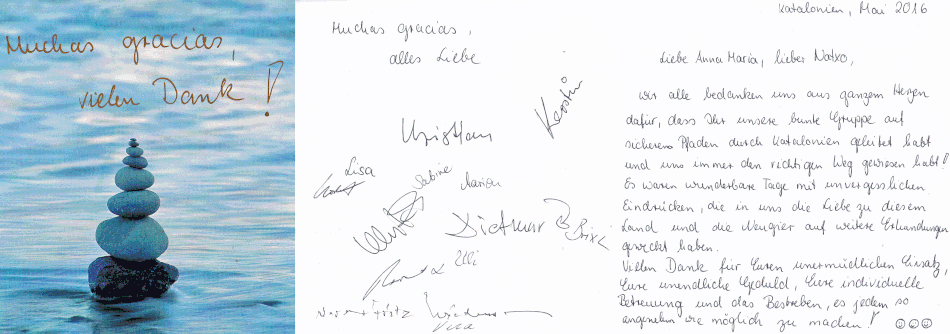 Muchas gracias,
vielen Dank!
Muchas gracias,
alles Liebe
Kerstin
Christian
Lisa
Sabine
Marion
Dietmar
Brixl
Ulli
Katalonien, Mai 2016
Liebe Anna Maria, lieber Natxo,
wir alle bedanken uns aus ganzem Herzen
dafür, dass Ihr unsere bunte Gruppe auf
sicheren Pfaden durch Katalonien geleitet habt
und uns immer den richtigen Weg gewiesen habt!
Es waren wunderbare Tage mit unvergesslichen
Eindrücken, die in uns die Liebe zu diesem
Land und die Neugier auf weitere Erkundungen
geweckt haben.
Vielen Dank für Euren unermüdlichen Einsatz,
Eure unendliche Geduld, Eure individuelle
Betreuung und das Bestreben, es jedem so
angenehm wie möglich zu machen!